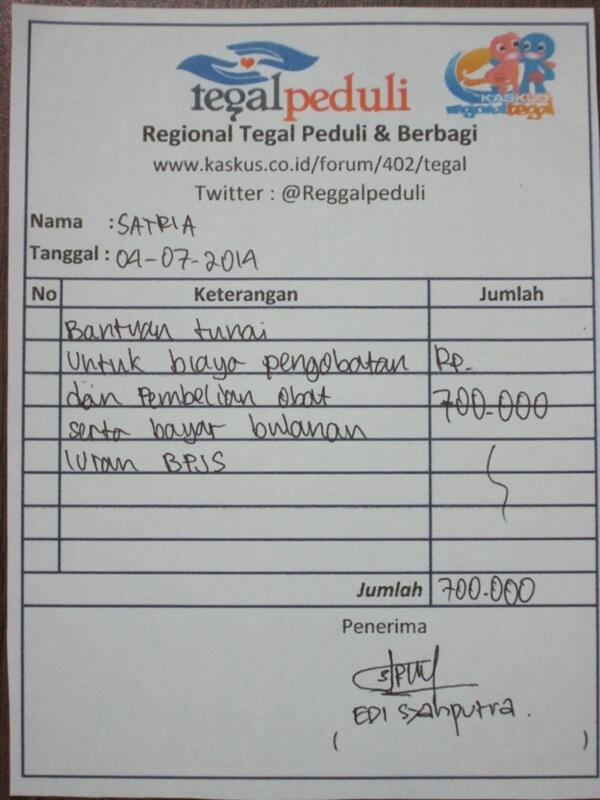 tegalpeduli
KASKUS
regionaltegal
Regional Tegal Peduli & Berbagi
www.kaskus.co.id/forum/402/tegal
Twitter : @Reggalpeduli
Nama : SATRIA
Tanggal : 04-07-2014
No Keterangan Jumlah
Bantuan tunai
Untuk biaya pengobatan Rp.
dan Pembelian Obat 700.000
serta bayar bulanan
Iuran BPJS
Jumlah 700.000
Penerima
EDI Syahputra.
( )